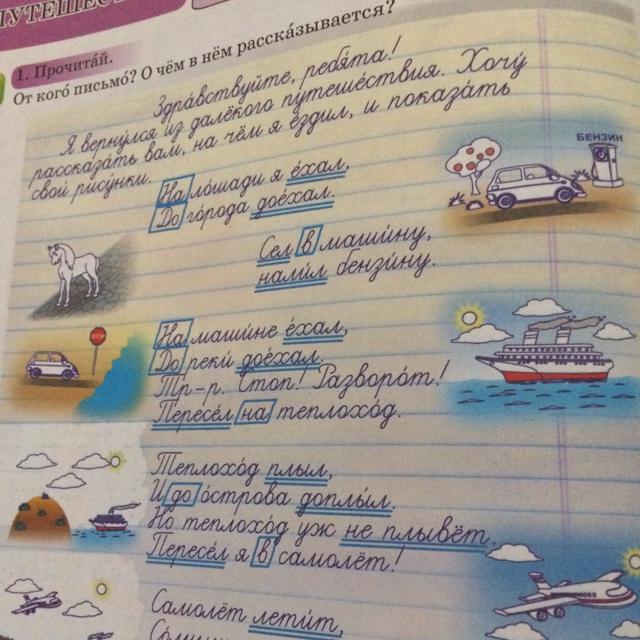 1. Прочита́й.
От кого́ письмо́? О чём в нём расска́зывается?
Здра́вствуйте, ребя́та!
Я верну́лся из далёкого путеше́ствия. Хочу́
рассказа́ть вам, на чём я е́здил, и показа́ть
свои́ рису́нки.
На ло́шади я е́хал,
До го́рода дое́хал.
БЕНЗИН
Сел в маши́ну,
нали́л бензи́ну.
На маши́не е́хал,
До реки́ дое́хал.
Тр-р. Стоп! Разворо́т!
Пересе́л на теплохо́д.
STOP
Теплохо́д плыл,
И до о́строва доплы́л.
Но теплохо́д уж не плывёт.
Пересе́л я в самолёт!
Самолёт лети́т,